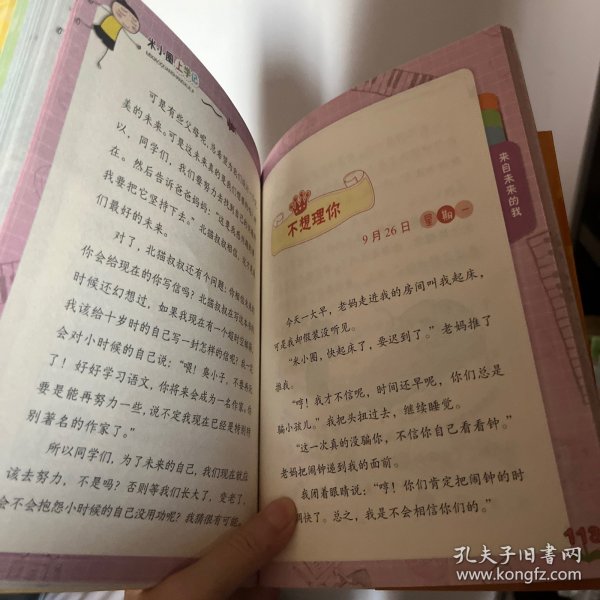 米小圈上学记
可是有些父母呢，总希望
美的未来。可是这未来真的是我们想要的
以，同学们，我们要努力去找到自己
在。然后告诉爸爸妈妈：“这是我
我要把它坚持下去。”北猫叔叔相信，
们最好的未来。
对了，北猫叔叔还有个问题：
你会给现在的你写信吗？北猫叔叔在写这本书的
时候还幻想过，如果我现在有一个超时空邮箱，
我该给十岁时的自己写一封怎样的信呢？我一定
会对小时候的自己说：“喂！臭小子，不要再玩
了！好好学习语文，你将来会成为一名作家，
要是能再努力一些，说不定我现在已经是特别特
别著名的作家了。”
所以同学们，为了未来的自己，我们现在就应
该去努力，不是吗？否则等我们长大了，变老了，
会不会抱怨小时候的自己没用功呢？我猜很有可能。
来自未来的我
不想理你
9月26日 星期一
今天一大早，老妈走进我的房间叫我起床，
可是我却假装没听见。
“米小圈，快起床了，要迟到了。”老妈推了
推我。
“哼！我才不信呢，时间还早呢，你们总是
骗小孩儿。”我把头扭过去，继续睡觉。
“这一次真的没骗你，不信你自己看看钟。”
老妈把闹钟递到我的面前。
我闭着眼睛说：“哼！你们肯定把闹钟的时
调快了。总之，我是不会相信你们的。”
113
孔夫子旧书网
www.kongfz.com